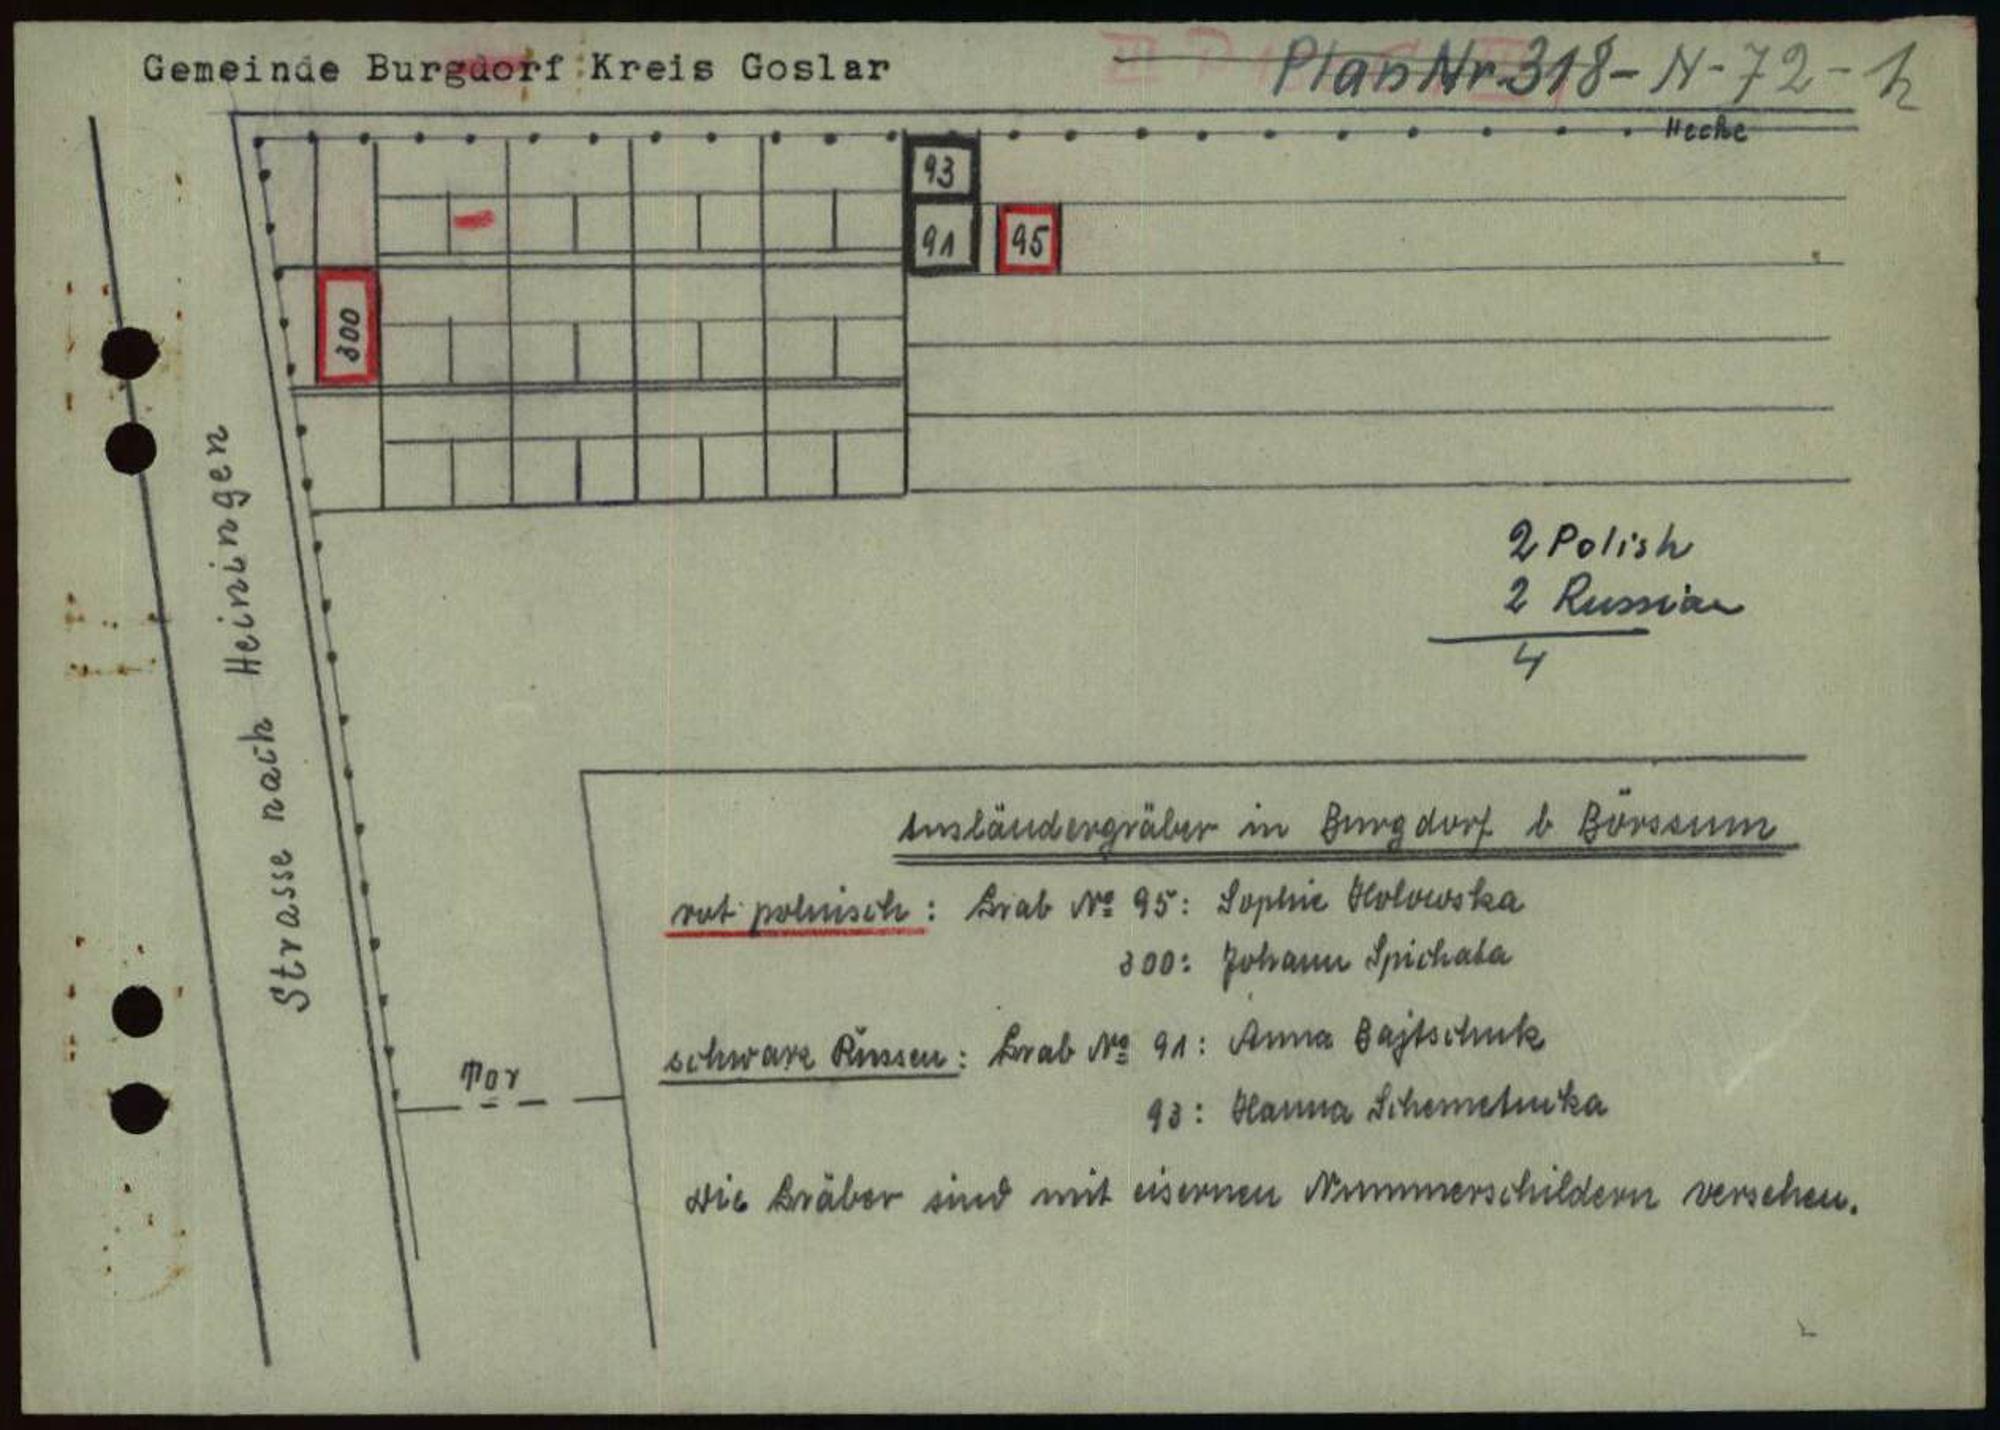 Gemeinde Burgdorf Kreis Goslar
Plan Nr. 318-N-72-h
Hecke
93
91
95
300
Strasse nach Heiningen
2 Polish
2 Russian
4
Ausländergräber in Burgdorf b Börssum
rot polnisch: Grab No 95: Sophie Holowska
300: Johann Spichala
schwarz Russen: Grab No 91: Anna Bajtschuk
93: Hanna Schemetucka
Tor
Die Gräber sind mit eisernen Nummerschildern versehen.